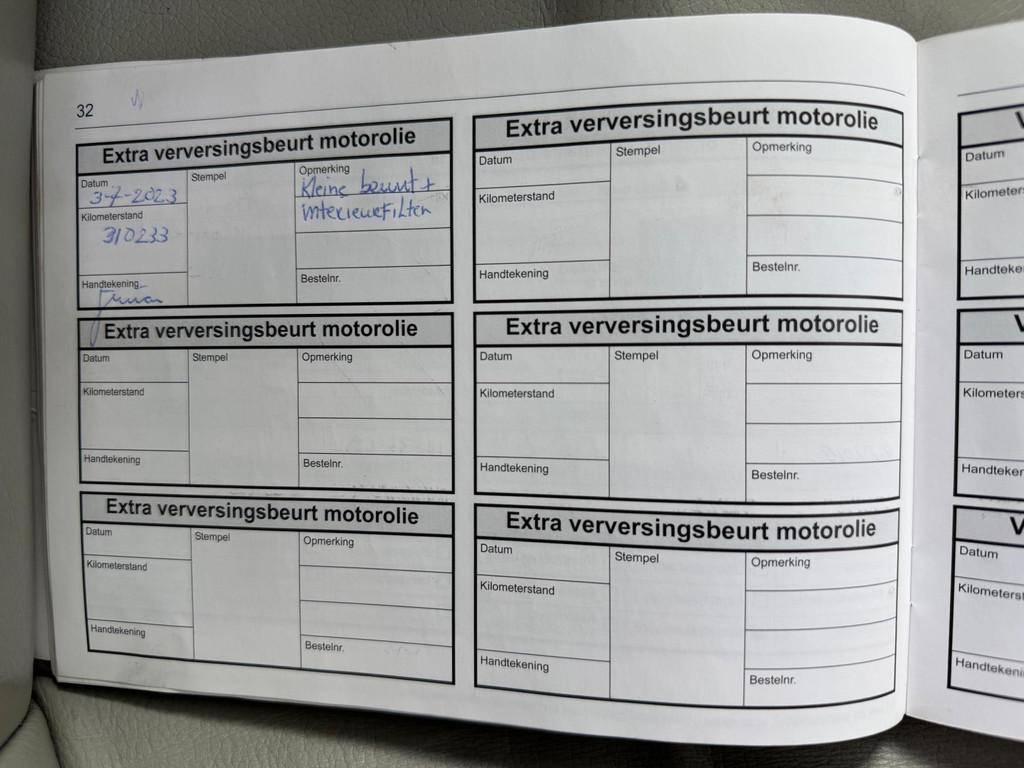 32
Extra verversingsbeurt motorolie
Datum
3-7-2023
Stempel
Opmerking
Kleine beurt +
interieurfilter
Kilometerstand
310233
Handtekening
Bestelnr.
Extra verversingsbeurt motorolie
Datum
Stempel
Opmerking
Kilometerstand
Handtekening
Bestelnr.
Extra verversingsbeurt motorolie
Datum
Stempel
Opmerking
Kilometerstand
Handtekening
Bestelnr.
Extra verversingsbeurt motorolie
Datum
Stempel
Opmerking
Kilometerstand
Handtekening
Bestelnr.
Extra verversingsbeurt motorolie
Datum
Stempel
Opmerking
Kilometerstand
Handtekening
Bestelnr.
Extra verversingsbeurt motorolie
Datum
Stempel
Opmerking
Kilometerstand
Handtekening
Bestelnr.
V
Datum
Kilometers
Handteke
V
Datum
Kilometers
Handteker
V
Datum
Kilometerst
Handtekeni